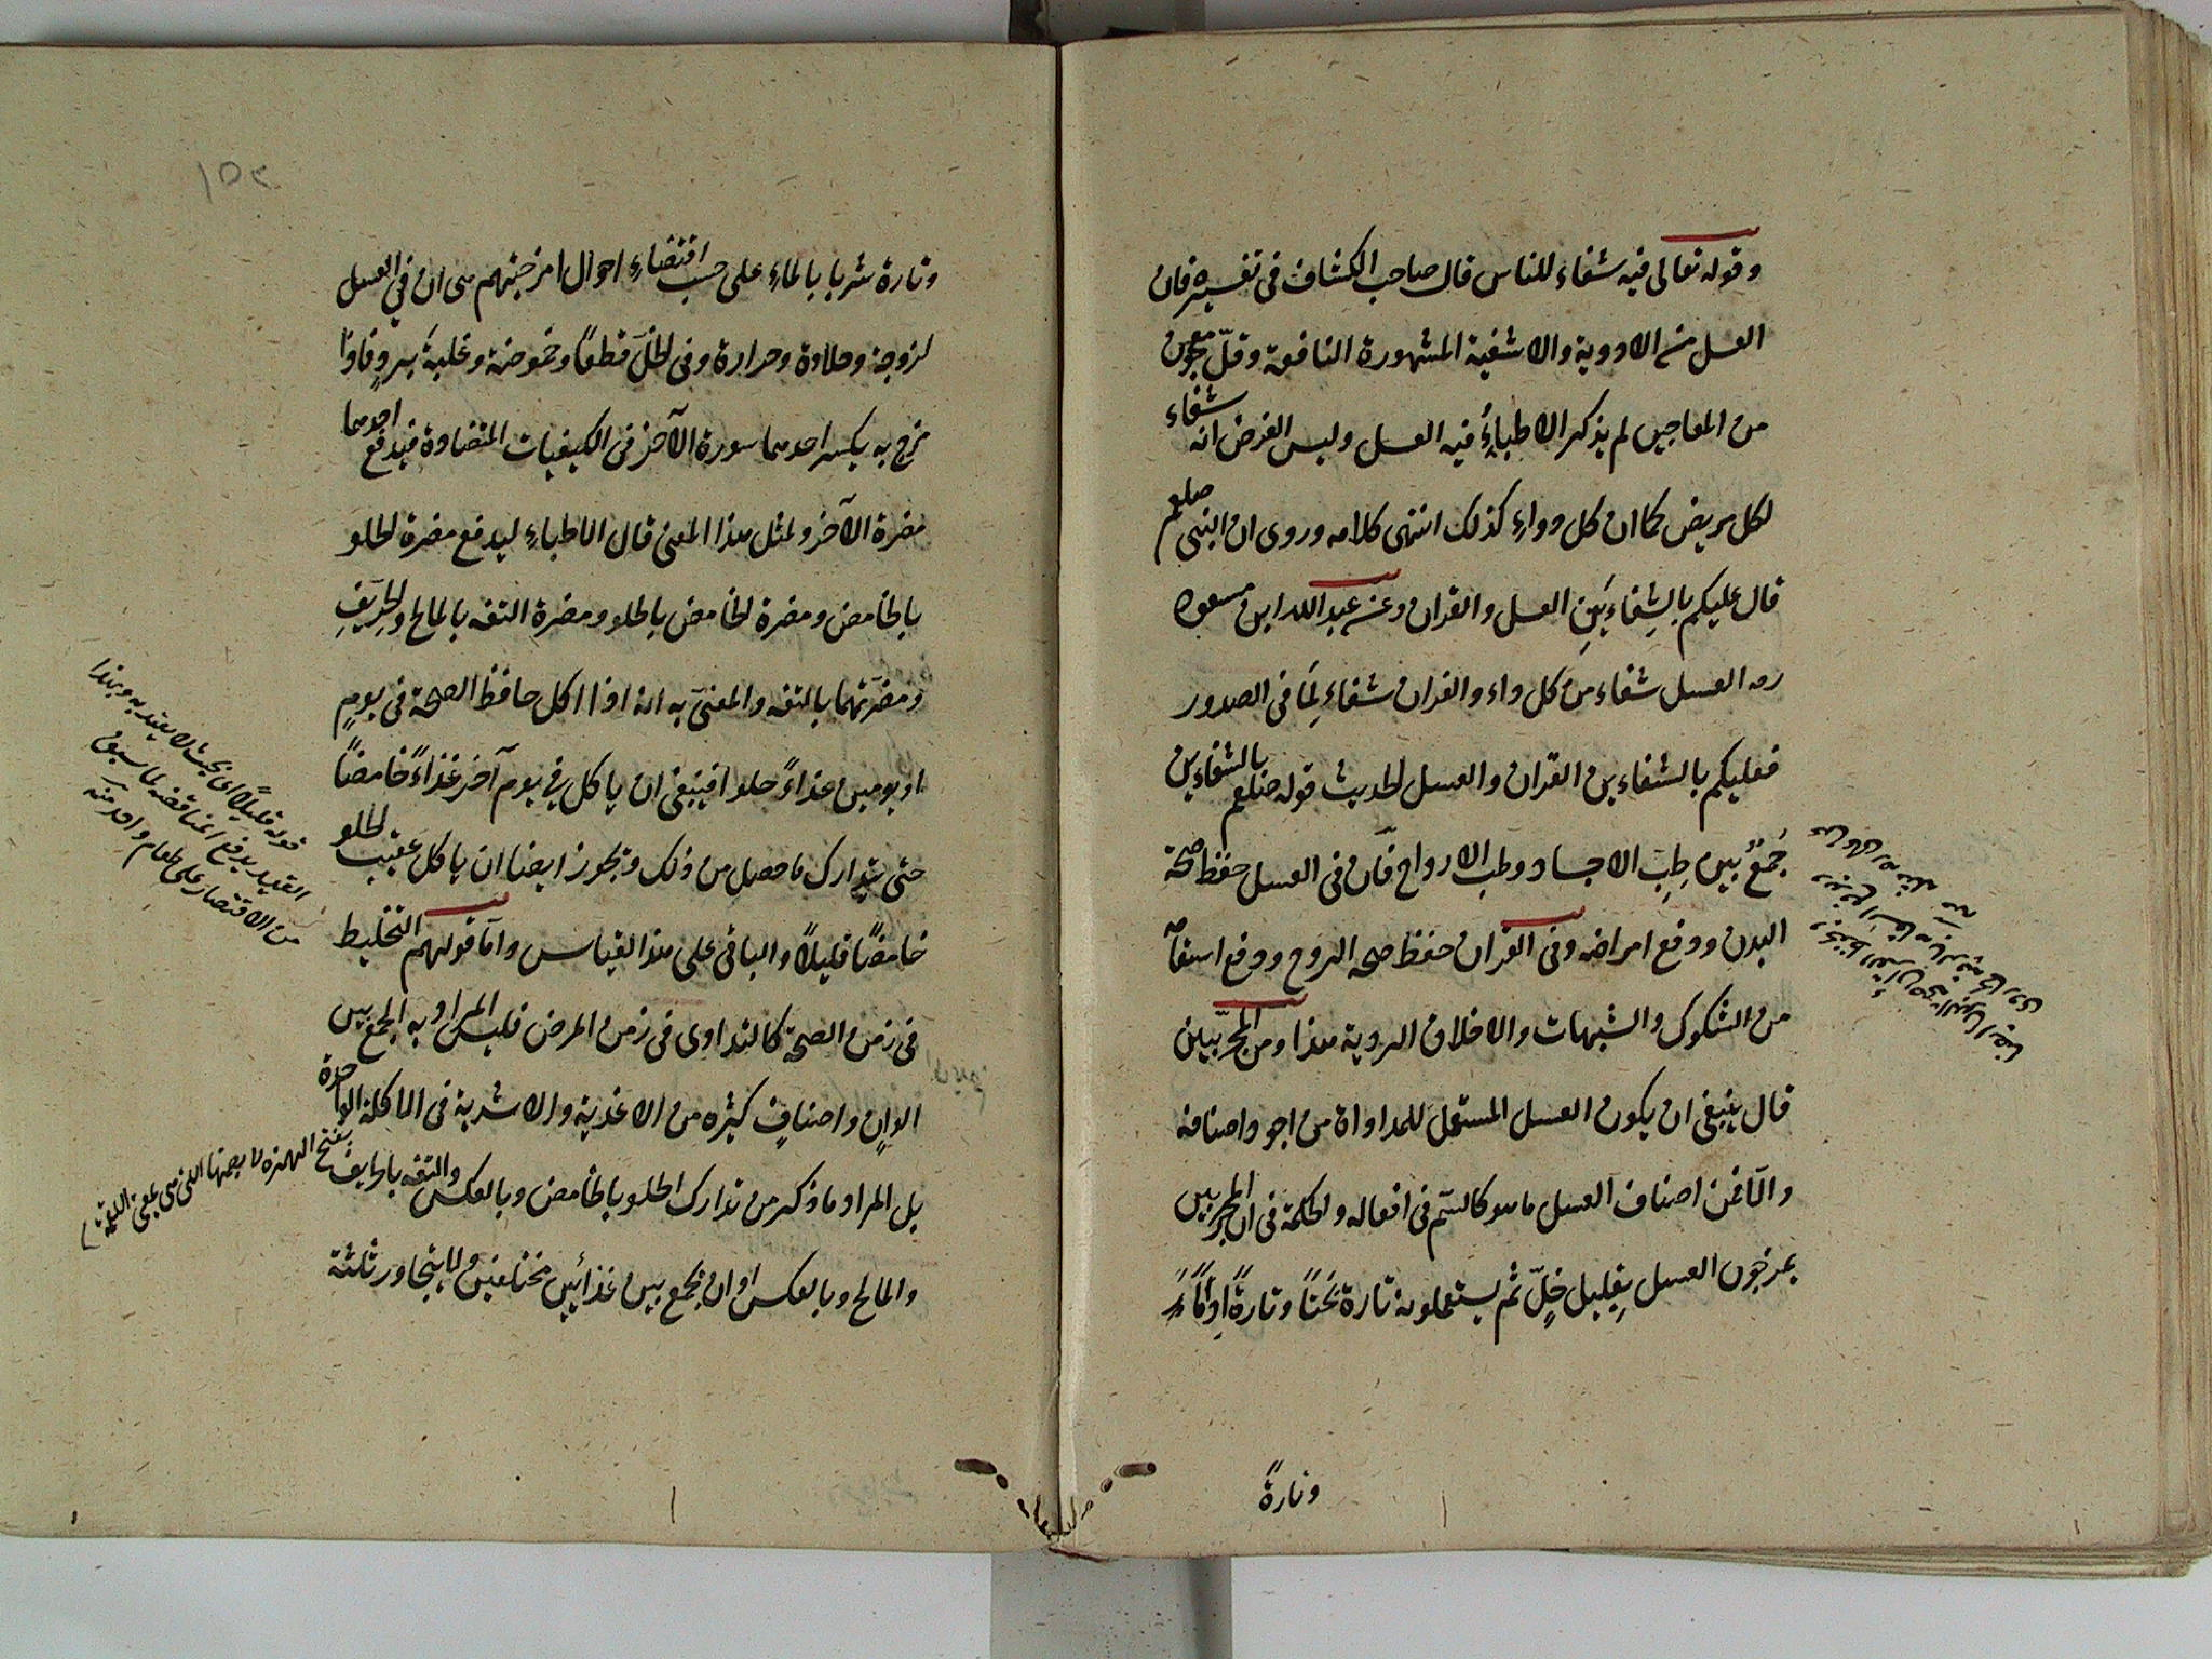 وقوله تعالى فيه شفاء للناس قال صاحب الكشاف فى تفسيره فان
العسل من الادوية والاشفية المشهورة النافعة وقلّ معجون
من المعاجين لم يذكر الاطباءُ فيه العسل وليس الغرض انه شفاء
لكل مريض كما ان كل دواءٍ كذلك انتهى كلامه وروى ان النبى صلعم
قال عليكم بالشِفاءَينِ العسل والقران وعن عبد الله ابن مسعود
رم العسل شفاء من كل داء والقران شفاءٌ لِمَا فى الصدور
فعليكم بالشفاءين القران والعسل الحديث قوله صلعم بالشفاءين
جَمَعَ بين طِبِّ الاجساد وطب الارواح فان فى العسل حفظ صحة
البدن ودفع امراضه وفى القران حفظ صحه الروح ودفع اسقامه
من الشكوك والشبهات والاخلاق الردية هذا ومن المجرّبين
قال ينبغى ان يكون العسل المستعمل للمداواة من اجود اصنافه
والّا فمن اصناف العسل ما هو كالسّم فى افعاله والحكمة فى ان المجرّبين
يمزجون العسل بِقليل خلٍّ ثم يستعملونه تارة بَحْتًا وتارةً
وتارةً
وتارة شربا بالماءِ على حسب اقتضاءِ احوال امزجتهم هى ان فى العسل
لزوجة وحلاوة وحرارة وفى الخلّ قطعًا وحموضة وغلبةَ بردٍ فاذا
مزج به يكسر احدهما سورة الآخر فى الكيفيات المتضادة فيدفع احدهما
مضرة الآخر ولمثل هذا المعنى قال الاطباءِ ليدفع مضرة الحلو
بالحامض ومضرة الحامض بالحلو ومضرة التفه بالمالح والحِرّيفِ
ومضرّتهما بالتفه والمعنىّ به انه اذا اكل حافظ الصحة فى يومٍ
او يومين غذاءً حلوا فينبغى ان ياكل فى يوم آخر غذاءً حامضاً
حتى يتدارك ما حصل من ذلك ويجوز ايضا ان ياكل عقيب الحلو
حامضًا قليلاً والباقى على هذا القياس وامّا قولهم التخليط
فى زمن الصحة كالتداوى فى زمن المرض فليس المراد به الجمع بين
الوانٍ واصنافٍ كثيره من الاغذية والاشربة فى الماكلة الواحدة
بل المراد ما ذكر من تدارك الحلو بالحامض وبالعكس والتفه بالحرّيف
والمالح وبالعكس او ان يجمع بين غذائين مختلفين ولا يتجاوز ثلثة
قوله قليلاً اى بحيث لا يعتد به وبهذا
القيد يدفع المناقضه لما سبق
من الاقتصار على طعام واحد منه
بفتح الهمزه لا بضمها التى هى بمعنى اللقمة
١٥٢